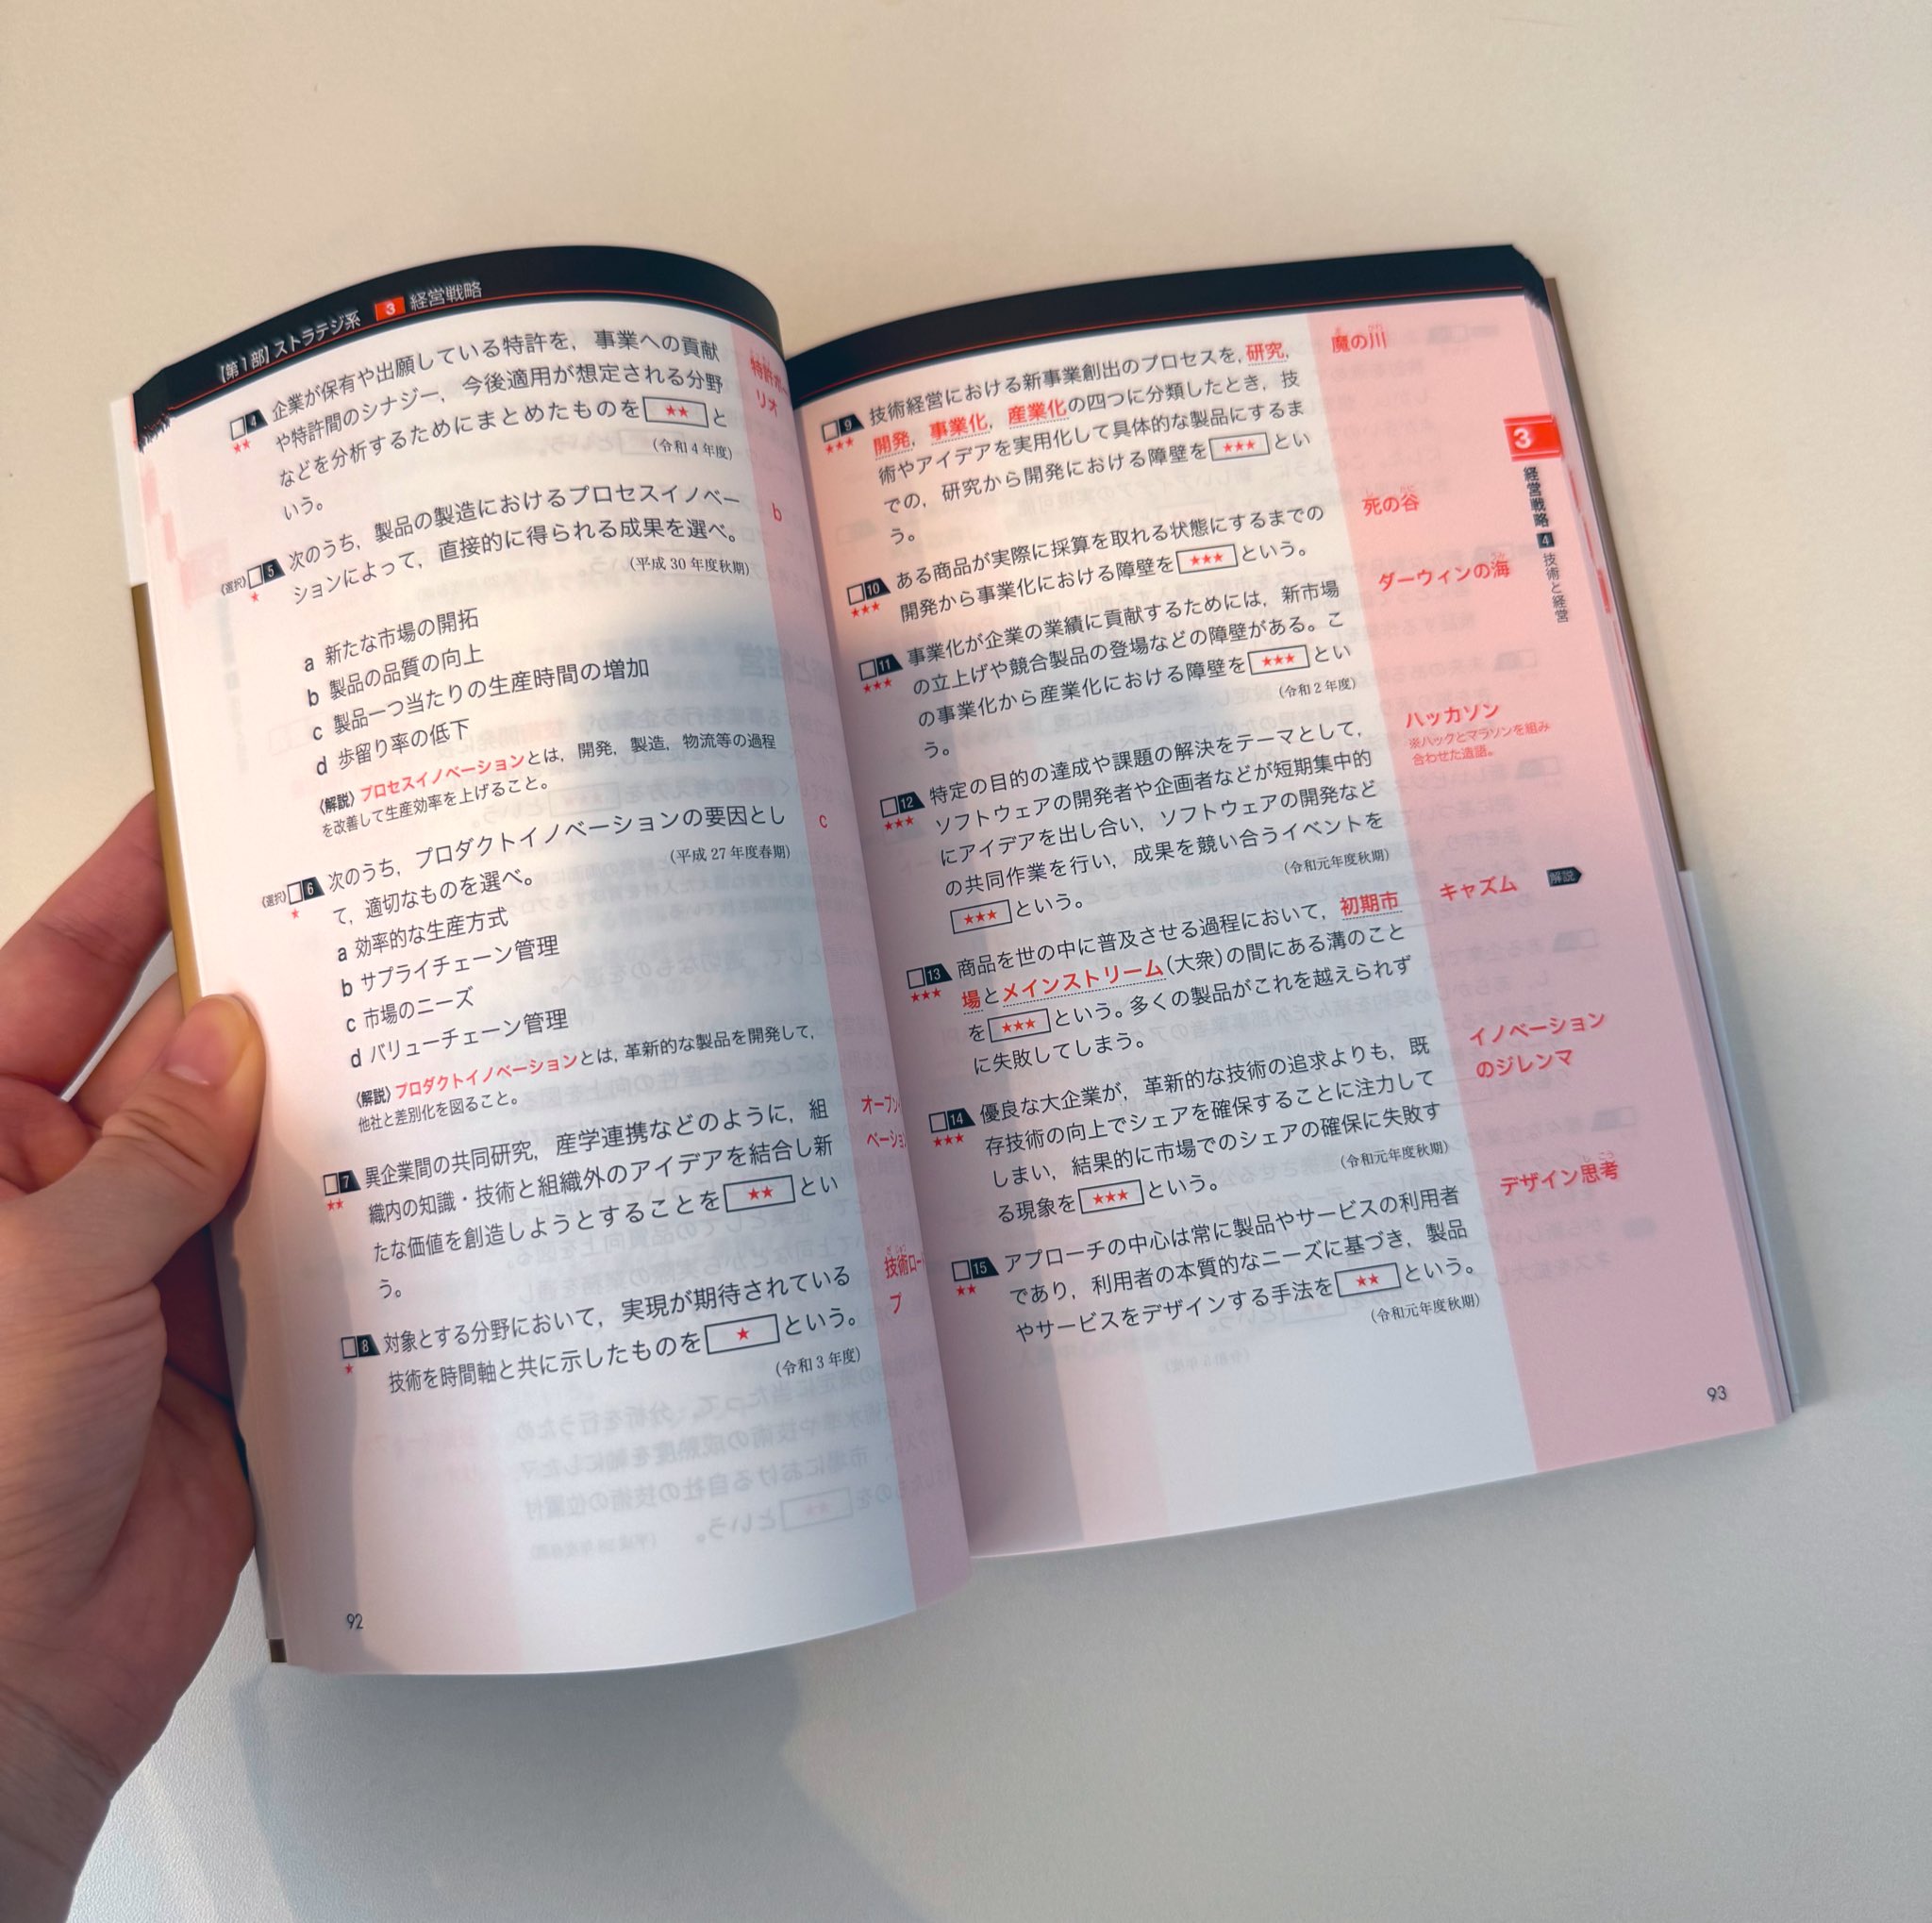 【第1部】ストラテジ系 3 経営戦略
4 企業が保有や出願している特許を，事業への貢献
や特許間のシナジー，今後適用が想定される分野
などを分析するためにまとめたものを ★★ と
いう。
(令和4年度)
★★
特許ポー
リオ
〈選択〉 5 次のうち，製品の製造におけるプロセスイノベー
ションによって，直接的に得られる成果を選べ。
(平成30年度秋期)
★
b
a 新たな市場の開拓
b 製品の品質の向上
c 製品一つ当たりの生産時間の増加
d 歩留り率の低下
〈解説〉プロセスイノベーションとは，開発，製造，物流等の過程
を改善して生産効率を上げること。
〈選択〉 6 次のうち，プロダクトイノベーションの要因とし
て，適切なものを選べ。
(平成27年度春期)
★
c
a 効率的な生産方式
b サプライチェーン管理
c 市場のニーズ
d バリューチェーン管理
〈解説〉プロダクトイノベーションとは，革新的な製品を開発して，
他社と差別化を図ること。
7 異企業間の共同研究，産学連携などのように，組
織内の知識・技術と組織外のアイデアを結合し新
たな価値を創造しようとすることを ★★ とい
う。
★★
オープン
ベーション
8 対象とする分野において，実現が期待されている
技術を時間軸と共に示したものを ★ という。
(令和3年度)
★
技術ロー
プ
92
9 技術経営における新事業創出のプロセスを，研究，
開発，事業化，産業化の四つに分類したとき，技
術やアイデアを実用化して具体的な製品にするま
での，研究から開発における障壁を ★★★ とい
う。
★★★
魔の川
10 ある商品が実際に採算を取れる状態にするまでの
開発から事業化における障壁を ★★★ という。
★★★
死の谷
11 事業化が企業の業績に貢献するためには，新市場
の立上げや競合製品の登場などの障壁がある。こ
の事業化から産業化における障壁を ★★★ とい
う。
(令和2年度)
★★★
ダーウィンの海
12 特定の目的の達成や課題の解決をテーマとして，
ソフトウェアの開発者や企画者などが短期集中的
にアイデアを出し合い，ソフトウェアの開発など
の共同作業を行い，成果を競い合うイベントを
★★★ という。
(令和元年度秋期)
★★★
ハッカソン
※ハックとマラソンを組み
合わせた造語。
13 商品を世の中に普及させる過程において，初期市
場とメインストリーム(大衆)の間にある溝のこと
を ★★★ という。多くの製品がこれを越えられず
に失敗してしまう。
★★★
キャズム
解説
14 優良な大企業が，革新的な技術の追求よりも，既
存技術の向上でシェアを確保することに注力して
しまい，結果的に市場でのシェアの確保に失敗す
る現象を ★★★ という。
(令和元年度秋期)
★★★
イノベーション
のジレンマ
15 アプローチの中心は常に製品やサービスの利用者
であり，利用者の本質的なニーズに基づき，製品
やサービスをデザインする手法を ★★ という。
(令和元年度秋期)
★★
デザイン思考
3
経営戦略 4 技術と経営
93